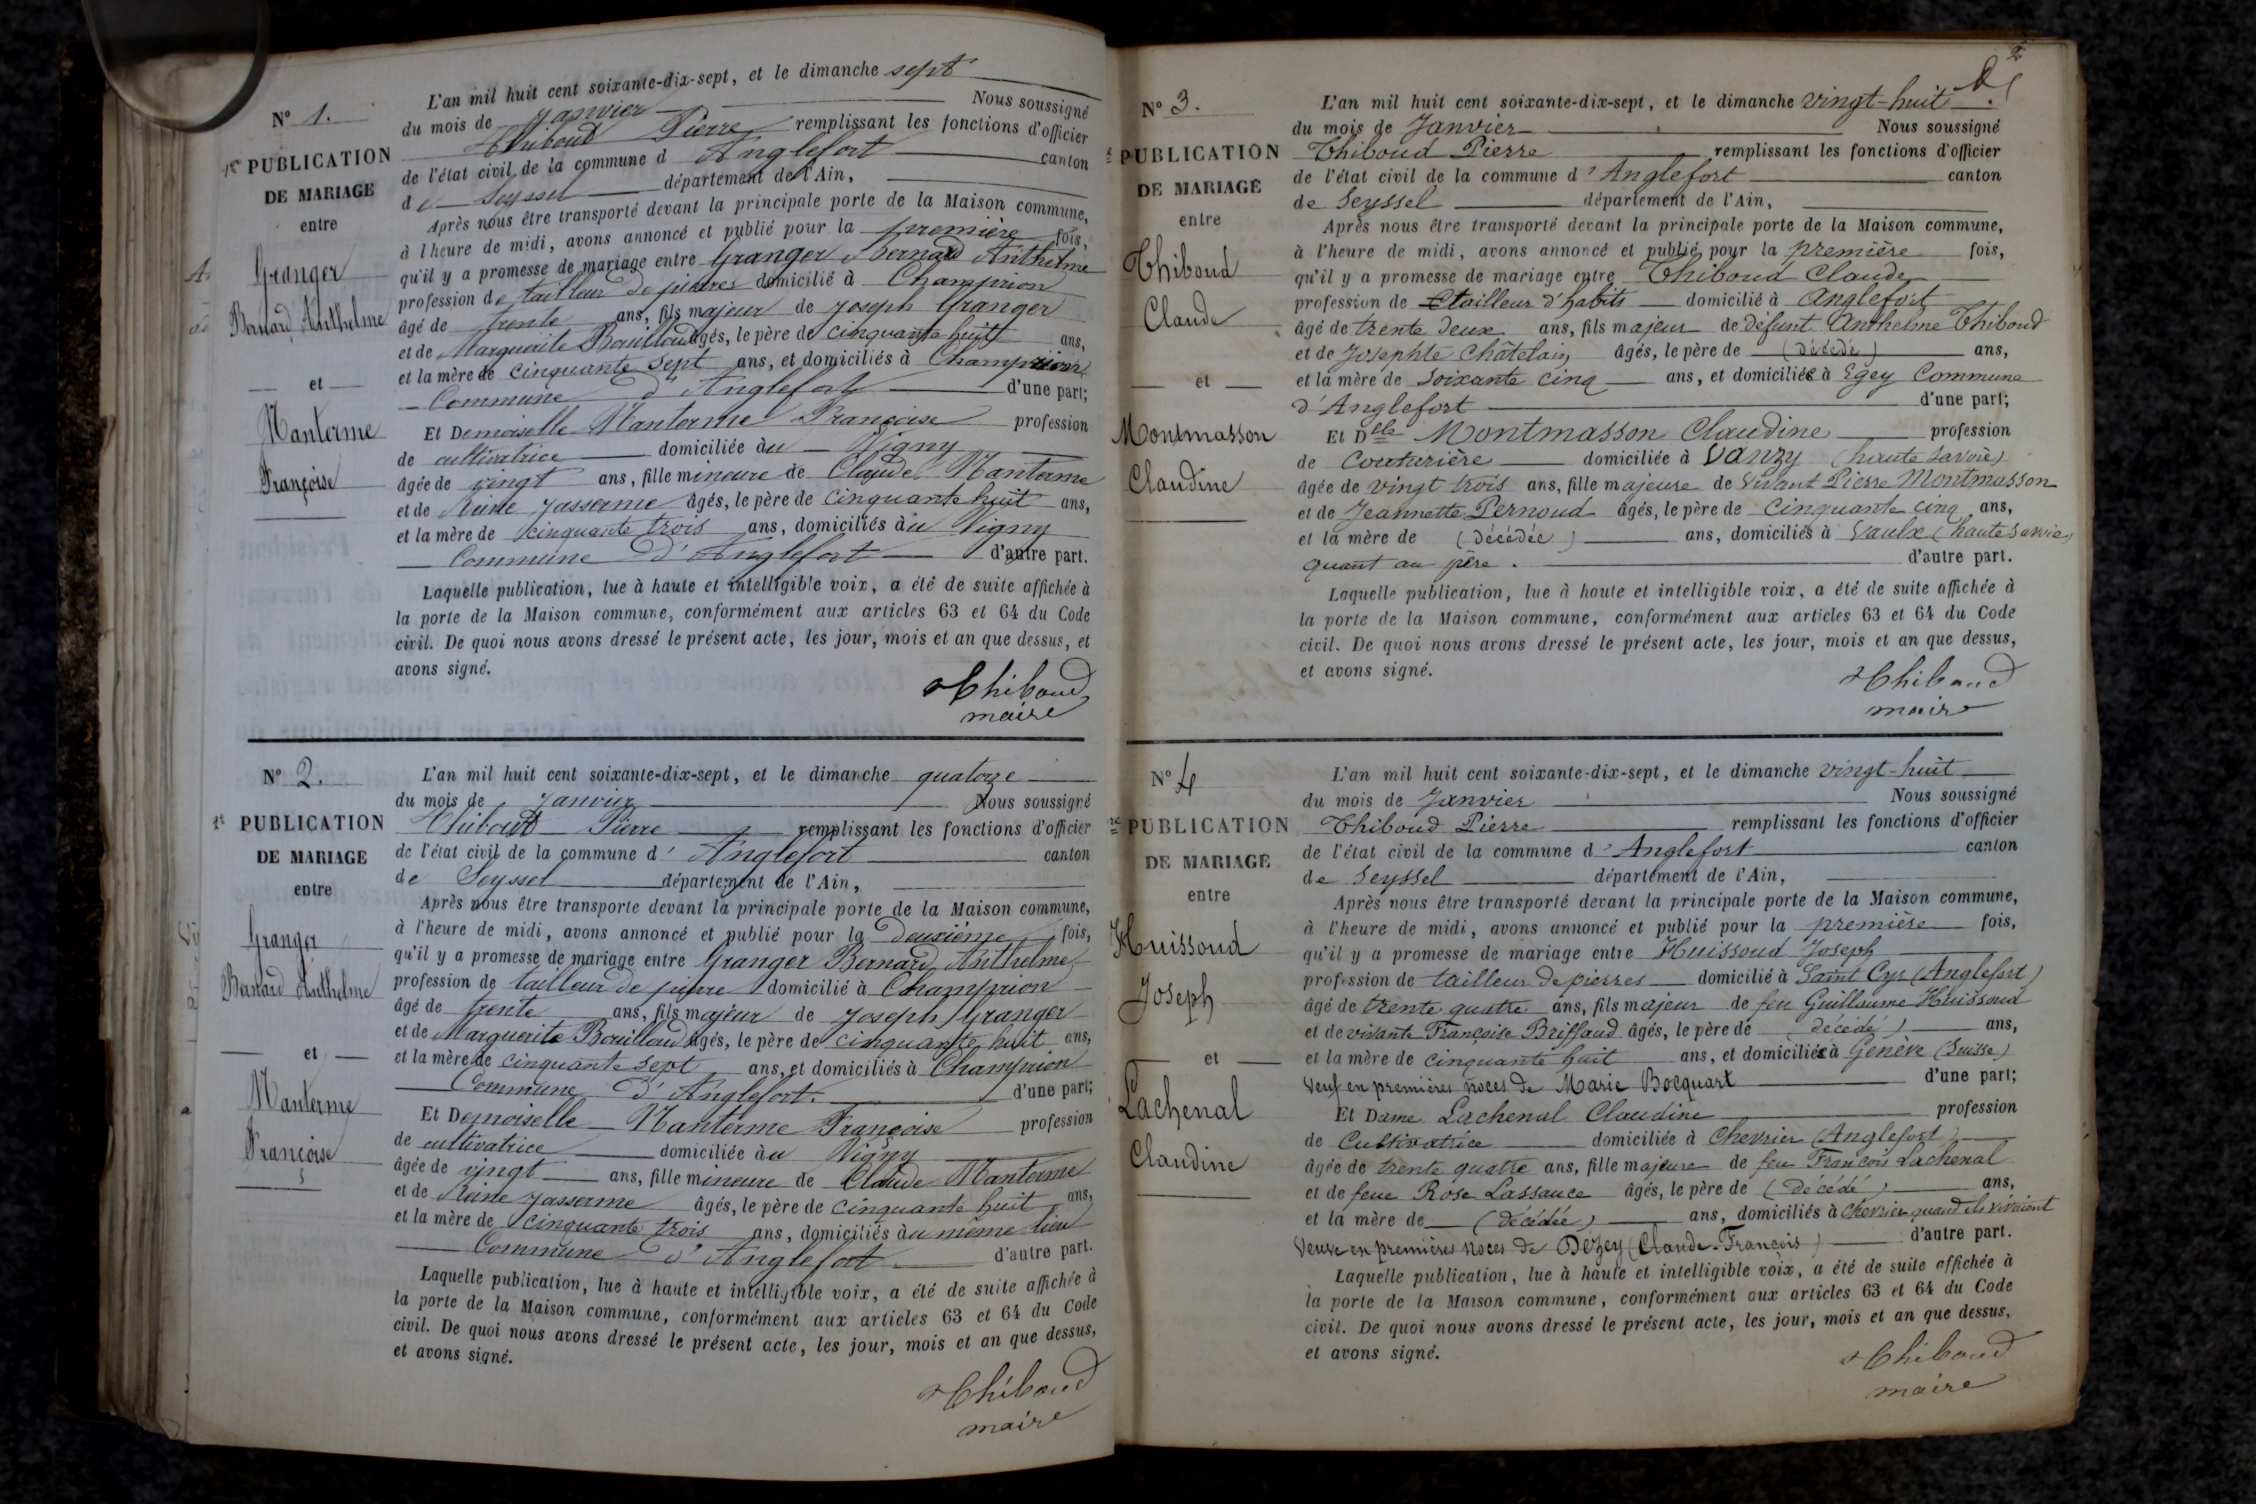 N° 1.
1re PUBLICATION
DE MARIAGE
entre
Granger
Bernard Anthelme
et
Manterme
Françoise
L'an mil huit cent soixante-dix-sept, et le dimanche sept
du mois de Janvier Nous soussigné
Thiboud Pierre remplissant les fonctions d'officier
de l'état civil de la commune d'Anglefort canton
de Seyssel département de l'Ain,
Après nous être transporté devant la principale porte de la Maison commune,
à l'heure de midi, avons annoncé et publié pour la première fois,
qu'il y a promesse de mariage entre Granger Bernard Anthelme
profession de tailleur de pierres domicilié à Champrion
âgé de trente ans, fils majeur de Joseph Granger
et de Marguerite Bouilloud âgés, le père de cinquante huit ans,
et la mère de cinquante sept ans, et domiciliés à Champrion
Commune d'Anglefort d'une part;
Et Demoiselle Manterme Françoise profession
de cultivatrice domiciliée àu Vigny
âgée de vingt ans, fille mineure de Claude Manterme
et de Reine Jasserme âgés, le père de cinquante huit ans,
et la mère de cinquante trois ans, domiciliés àu Vigny
Commune d'Anglefort d'autre part.
Laquelle publication, lue à haute et intelligible voix, a été de suite affichée à
la porte de la Maison commune, conformément aux articles 63 et 64 du Code
civil. De quoi nous avons dressé le présent acte, les jour, mois et an que dessus, et
avons signé.
Thiboud
maire
N° 2.
PUBLICATION
DE MARIAGE
entre
Granger
Bernard Anthelme
et
Manterme
Françoise
L'an mil huit cent soixante-dix-sept, et le dimanche quatorze
du mois de Janvier Nous soussigné
Thiboud Pierre remplissant les fonctions d'officier
de l'état civil de la commune d'Anglefort canton
de Seyssel département de l'Ain,
Après nous être transporté devant la principale porte de la Maison commune,
à l'heure de midi, avons annoncé et publié pour la deuxième fois,
qu'il y a promesse de mariage entre Granger Bernard Anthelme
profession de tailleur de pierre domicilié à Champrion
âgé de trente ans, fils majeur de Joseph Granger
et de Marguerite Bouilloud âgés, le père de cinquante huit ans,
et la mère de cinquante sept ans, et domiciliés à Champrion
Commune d'Anglefort. d'une part;
Et Demoiselle Manterme Françoise profession
de cultivatrice domiciliée àu Vigny
âgée de vingt ans, fille mineure de Claude Manterme
et de Reine Jasserme âgés, le père de cinquante huit ans,
et la mère de cinquante trois ans, domiciliés àu même lieu
Commune d'Anglefort d'autre part.
Laquelle publication, lue à haute et intelligible voix, a été de suite affichée à
la porte de la Maison commune, conformément aux articles 63 et 64 du Code
civil. De quoi nous avons dressé le présent acte, les jour, mois et an que dessus,
et avons signé.
Thiboud
maire
2
N° 3.
PUBLICATION
DE MARIAGE
entre
Thiboud
Claude
et
Montmasson
Claudine
L'an mil huit cent soixante-dix-sept, et le dimanche vingt-huit
du mois de Janvier Nous soussigné
Thiboud Pierre remplissant les fonctions d'officier
de l'état civil de la commune d'Anglefort canton
de Seyssel département de l'Ain,
Après nous être transporté devant la principale porte de la Maison commune,
à l'heure de midi, avons annoncé et publié pour la première fois,
qu'il y a promesse de mariage entre Thiboud Claude
profession de tailleur d'habits domicilié à Anglefort
âgé de trente deux ans, fils majeur de défunt Anthelme Thiboud
et de Josephte Châtelain âgés, le père de (décédé) ans,
et la mère de soixante cinq ans, et domiciliés à Egey Commune
d'Anglefort d'une part;
Et Delle Montmasson Claudine profession
de Couturière domiciliée à Vanzy (haute Savoie)
âgée de vingt trois ans, fille majeure de Vivant Pierre Montmasson
et de Jeannette Pernoud âgés, le père de Cinquante cinq ans,
et la mère de (décédée) ans, domiciliés à Vaulx (haute Savoie)
quant au père. d'autre part.
Laquelle publication, lue à haute et intelligible voix, a été de suite affichée à
la porte de la Maison commune, conformément aux articles 63 et 64 du Code
civil. De quoi nous avons dressé le présent acte, les jour, mois et an que dessus,
et avons signé.
Thiboud
maire
N° 4
PUBLICATION
DE MARIAGE
entre
Huissoud
Joseph
et
Lachenal
Claudine
L'an mil huit cent soixante-dix-sept, et le dimanche vingt-huit
du mois de Janvier Nous soussigné
Thiboud Pierre remplissant les fonctions d'officier
de l'état civil de la commune d'Anglefort canton
de Seyssel département de l'Ain,
Après nous être transporté devant la principale porte de la Maison commune,
à l'heure de midi, avons annoncé et publié pour la première fois,
qu'il y a promesse de mariage entre Huissoud Joseph
profession de tailleur de pierres domicilié à Saint Cyr (Anglefort)
âgé de trente quatre ans, fils majeur de feu Guillaume Huissoud
et de vivante Françoise Briffaud âgés, le père de (décédé) ans,
et la mère de cinquante huit ans, et domiciliés à Genève (Suisse)
Veuf en premières noces de Marie Bocquart d'une part;
Et Dame Lachenal Claudine profession
de Cultivatrice domiciliée à Chevrier (Anglefort)
âgée de trente quatre ans, fille majeure de feu François Lachenal
et de feue Rose Lassauce âgés, le père de (décédé) ans,
et la mère de (décédée) ans, domiciliés à Chevrier quand ils vivaient
Veuve en premières noces de Dezey (Claude-François) d'autre part.
Laquelle publication, lue à haute et intelligible voix, a été de suite affichée à
la porte de la Maison commune, conformément aux articles 63 et 64 du Code
civil. De quoi nous avons dressé le présent acte, les jour, mois et an que dessus,
et avons signé.
Thiboud
maire